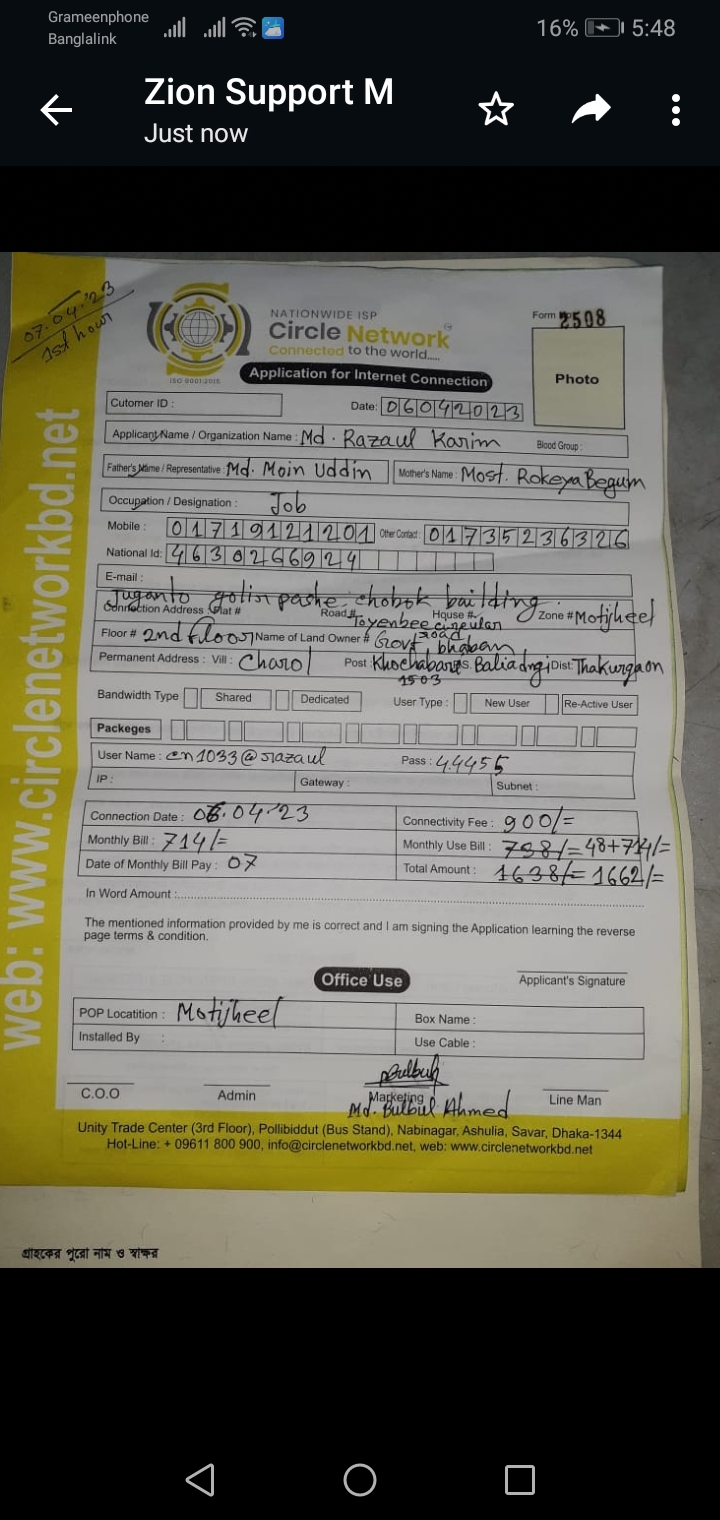 Grameenphone
Banglalink
16% 5:48
Zion Support M
Just now
07.04.'23
1st hour
NATIONWIDE ISP
Circle Network
Connected to the world.....
ISO 9001:2015
Form 2508
Application for Internet Connection
Photo
Cutomer ID :
Date: 06042023
Applicant Name / Organization Name : Md. Razaul Karim Blood Group :
Father's Name / Representative : Md. Moin Uddin Mother's Name : Most. Rokeya Begum
Occupation / Designation : Job
Mobile : 01719121201 Other Contact : 01735236326
National Id: 4630266924
E-mail :
Juganto golir pashe, chobok bailding
Connection Address : Flat # Road # House # Zone # Motijheel
Toyenbee circular road
Floor # 2nd floor Name of Land Owner # Govt bhaban
Permanent Address : Vill : Charol Post : Khochabari P.S. Baliadngi Dist: Thakurgaon
1503
Bandwidth Type Shared Dedicated User Type : New User Re-Active User
Packeges
User Name : cn1033@razaul Pass : 44455
IP : Gateway : Subnet :
Connection Date : 06.04.'23 Connectivity Fee : 900/=
Monthly Bill : 714/= Monthly Use Bill : 738/= 48+714/=
Date of Monthly Bill Pay : 07 Total Amount : 1638/= 1662/=
In Word Amount :
The mentioned information provided by me is correct and I am signing the Application learning the reverse
page terms & condition.
Applicant's Signature
Office Use
POP Locatition : Motijheel Box Name :
Installed By : Use Cable :
Bulbul
C.O.O Admin Marketing Line Man
Md. Bulbul Ahmed
Unity Trade Center (3rd Floor), Pollibiddut (Bus Stand), Nabinagar, Ashulia, Savar, Dhaka-1344
Hot-Line: + 09611 800 900, info@circlenetworkbd.net, web: www.circlenetworkbd.net
web: www.circlenetworkbd.net
গ্রাহকের পুরো নাম ও স্বাক্ষর